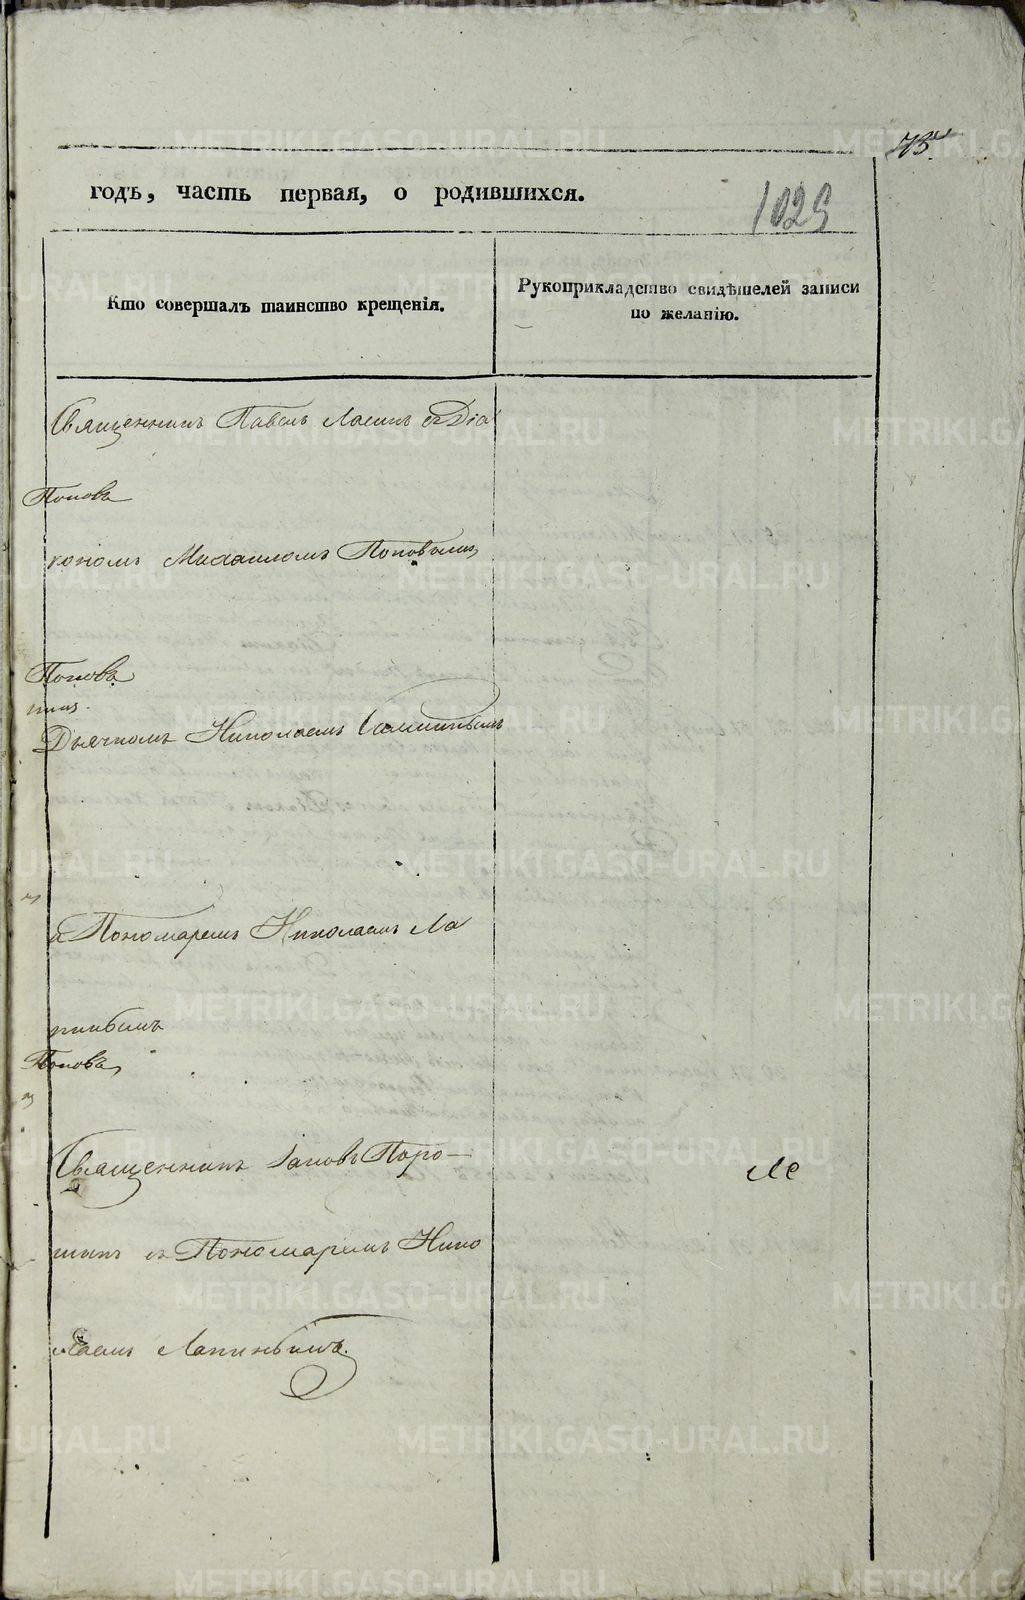 годъ, часть первая, о родившихся.
1029
Кто совершалъ таинство крещенія.
Рукоприкладство свидѣтелей записи
по желанію.
Священникъ Павелъ съ Діа
Попова
кономъ Михаиломъ Поповымъ
Попова
Дьячкомъ Николаемъ
и Пономаремъ Николаемъ Ла
пинымъ
Попова
Священникъ Іаковъ Поро-
шинъ съ Пономаремъ Нико
лаемъ Лапинымъ.
METRIKI.GASO-URAL.RU